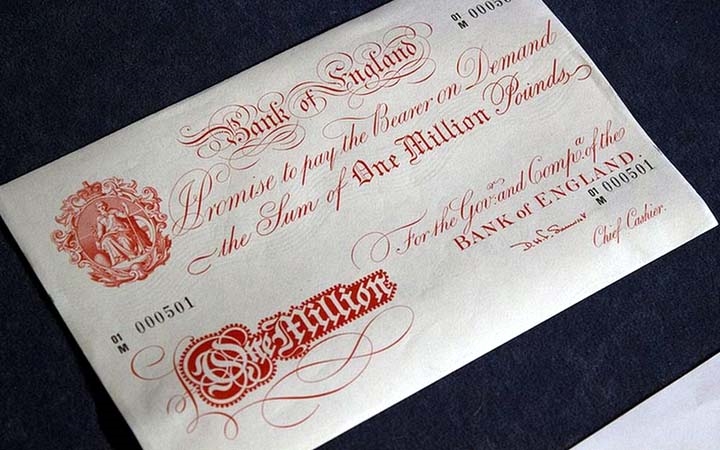 01
M 0005
Bank of England
I Promise to pay the Bearer on Demand
the Sum of One Million Pounds
For the Govr. and Compa. of the
BANK of ENGLAND
01
M 000501
Chief Cashier.
01
M 000501
One Million